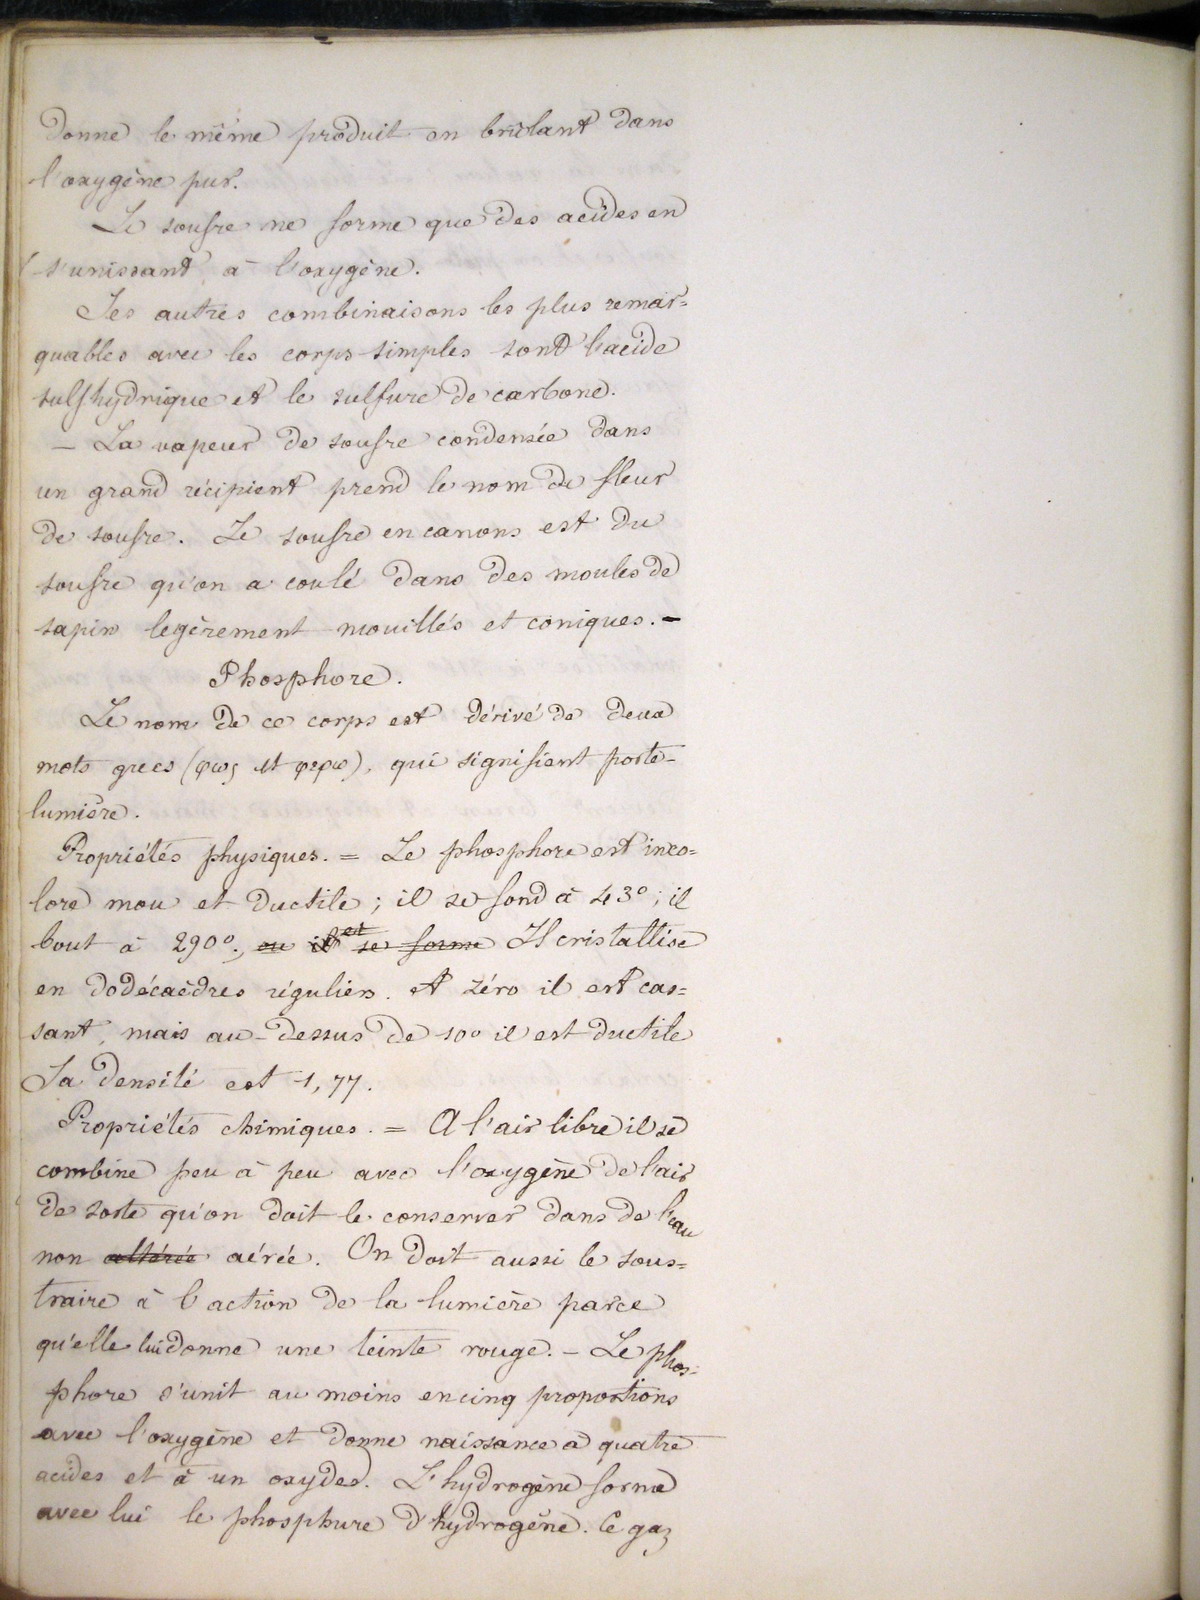 donne le même produit en brûlant dans
l'oxygène pur.
Le soufre ne forme que des acides en
s'unissant à l'oxygène.
Ses autres combinaisons les plus remar=
quables avec les corps simples sont l'acide
sulfhydrique et le sulfure de carbone.
— La vapeur de soufre condensée dans
un grand récipient prend le nom de fleur
de soufre. Le soufre en canons est du
soufre qu'on a coulé dans des moules de
sapin legèrement mouillés et coniques. —
Phosphore.
Le nom de ce corps est dérivé de deux
mots grecs (φως et φερω), qui signifient porte-
lumière.
Propriétés physiques. = Le phosphore est inco=
lore mou et ductile ; il se fond à 43° ; il
bout à 290°, ou il est se forme Il cristallise
en dodécaèdres réguliers. A zéro il est cas=
sant, mais au-dessus de 10° il est ductile
Sa densité est 1,77.
Propriétés chimiques. = A l'air libre il se
combine peu à peu avec l'oxygène de l'air
de sorte qu'on doit le conserver dans de l'eau
non altérée aérée. On doit aussi le sous=
traire à l'action de la lumière parce
qu'elle lui donne une teinte rouge. — Le phos=
phore s'unit au moins en cinq proportions
avec l'oxygène et donne naissance à quatre
acides et à un oxydes. L'hydrogène forme
avec lui le phosphure d'hydrogène. Ce gaz